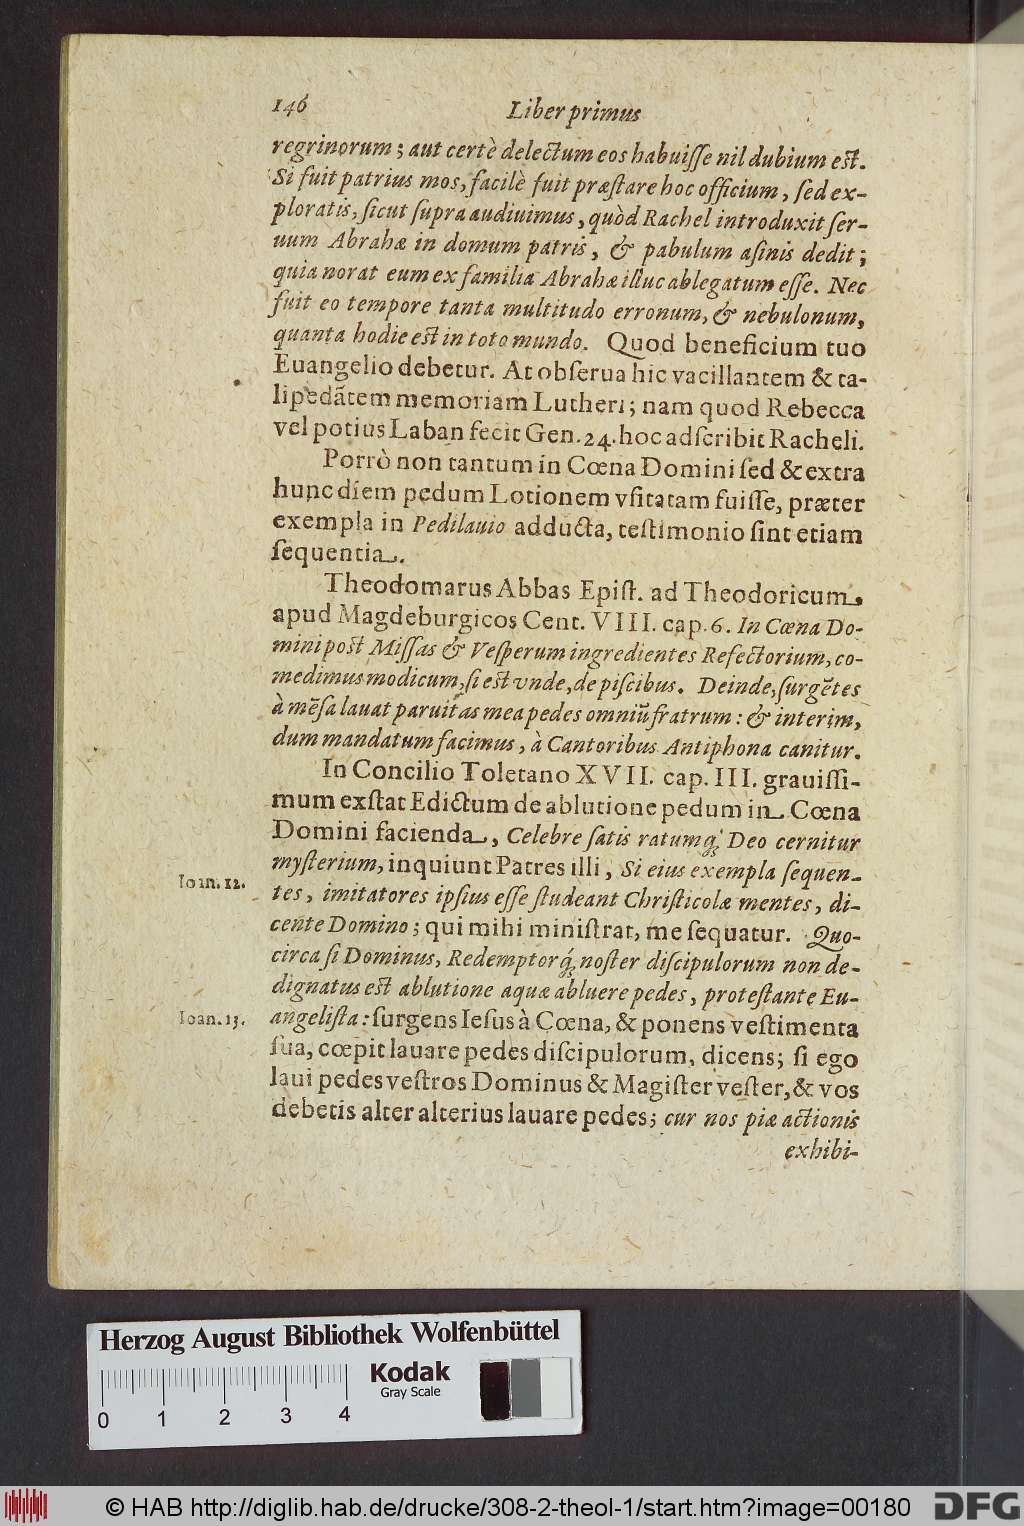 146 Liber primus
regrinorum; aut certè delectum eos habuiſſe nil dubium est.
Si fuit patrius mos, facilè fuit præſtare hoc officium, ſed ex-
ploratis, ſicut ſupra audiuimus, quòd Rachel introduxit ſer-
uum Abrahæ in domum patris, & pabulum aſinis dedit;
quia norat eum ex familia Abrahæ illuc ablegatum eſſe. Nec
fuit eo tempore tanta multitudo erronum, & nebulonum,
quanta hodie est in toto mundo. Quod beneficium tuo
Euangelio debetur. At obſerua hic vacillantem & ta-
lipedãtem memoriam Lutheri; nam quod Rebecca
vel potius Laban fecit Gen. 24. hoc adſcribit Racheli.
Porrò non tantum in Cœna Domini ſed & extra
hunc diem pedum Lotionem vſitatam fuiſſe, præter
exempla in Pedilauio adducta, teſtimonio ſint etiam
ſequentia.
Theodomarus Abbas Epiſt. ad Theodoricum,
apud Magdeburgicos Cent. VIII. cap. 6. In Cœna Do-
mini post Miſſas & Veſperum ingredientes Refectorium, co-
medimus modicum, ſi est vnde, de piſcibus. Deinde, ſurgẽtes
à mẽſa lauat paruitas mea pedes omniũ fratrum: & interim,
dum mandatum facimus, à Cantoribus Antiphona canitur.
In Concilio Toletano XVII. cap. III. grauiſſi-
mum exſtat Edictum de ablutione pedum in Cœna
Domini facienda, Celebre ſatis ratumq́; Deo cernitur
myſterium, inquiunt Patres illi, Si eius exempla ſequen-
Ioan. 12.
tes, imitatores ipſius eſſe ſtudeant Chriſticolæ mentes, di-
cente Domino; qui mihi miniſtrat, me ſequatur. Quo-
circa ſi Dominus, Redemptorq́; noſter diſcipulorum non de-
dignatus est ablutione aquæ abluere pedes, proteſtante Eu-
Ioan. 13.
angeliſta: ſurgens Ieſus à Cœna, & ponens veſtimenta
ſua, cœpit lauare pedes diſcipulorum, dicens; ſi ego
laui pedes veſtros Dominus & Magiſter veſter, & vos
debetis alter alterius lauare pedes; cur nos piæ actionis
exhibi-
Herzog August Bibliothek Wolfenbüttel
Kodak
Gray Scale
0 1 2 3 4
© HAB http://diglib.hab.de/drucke/308-2-theol-1/start.htm?image=00180
DFG